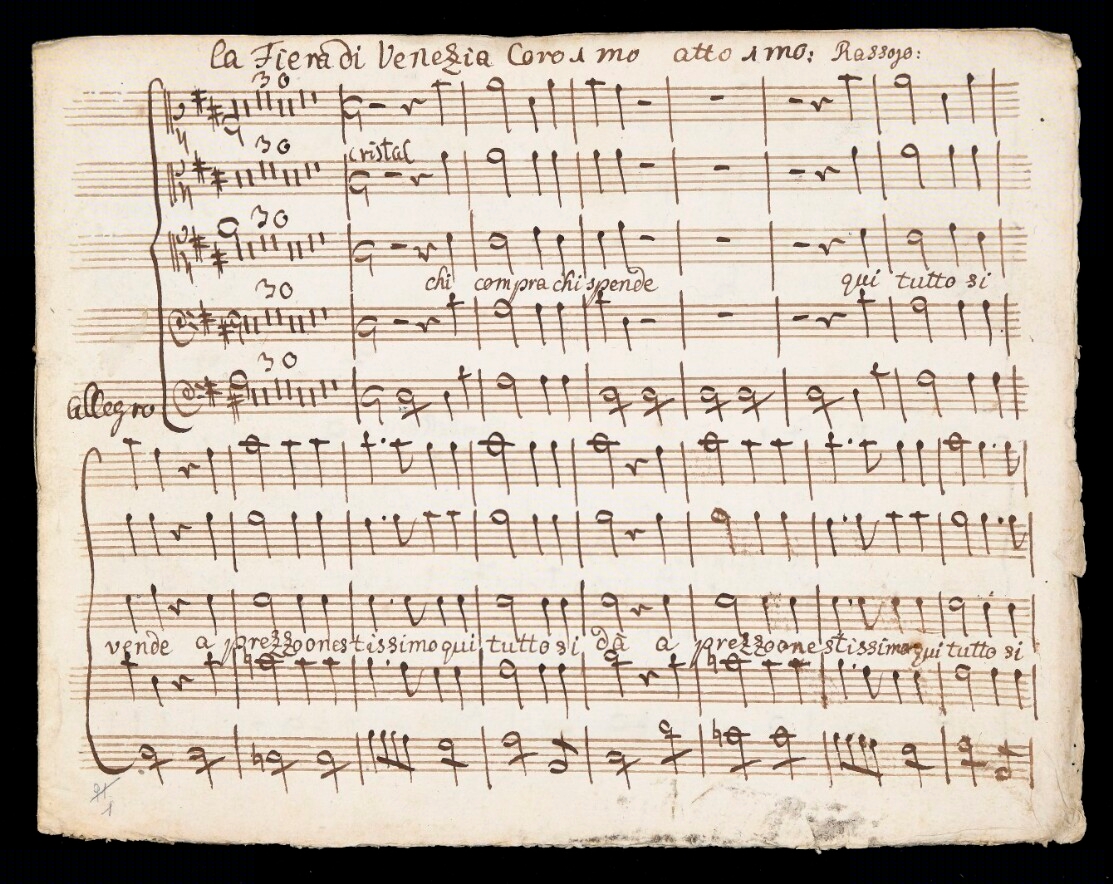 la Fiera di Venezia Coro 1mo atto 1mo:
30
30
cristal
30
chi compra chi spende qui tutto si
30
30
allegro
vende a prezzo onestissimo qui tutto si dà a prezzo onestissimo qui tutto si
1